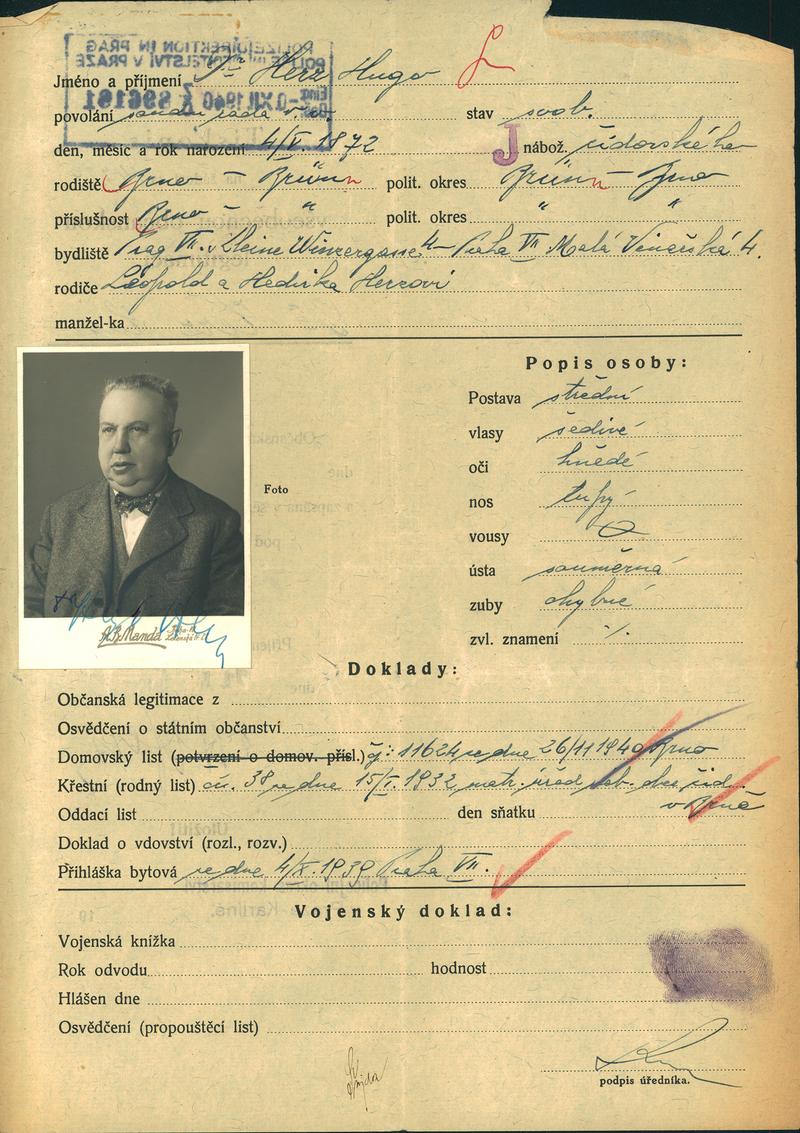 POLIZEIDIREKTION IN PRAG
POLICEJNÍ ŘEDITELSTVÍ V PRAZE
Jméno a příjmení Dr Herz Hugo
povolání soudní rada v. v. stav svob.
den, měsíc a rok narození 4/V. 1872 J nábož. židovského
rodiště Brno – Brünn polit. okres Brünn – Brno
příslušnost Brno – " polit. okres " "
bydliště Prag VII. Kleine Winzergasse 4 – Praha VII Malá Vinařská 4.
rodiče Leopold a Hedvika Herzovi
manžel-ka
Popis osoby:
Postava střední
vlasy šedivé
oči hnědé
Foto
nos tupý
vousy
ústa souměrná
zuby chybné
zvl. znamení ./.
Manda
Doklady:
Občanská legitimace z
Osvědčení o státním občanství
Domovský list (potvrzení o domov. přísl.) čj: 11624 ze dne 26/11 1940 Brno
Křestní (rodný list) čís. 38 ze dne 15/I. 1932 matr. úřad žid.
v Brně
Oddací list den sňatku
Doklad o vdovství (rozl., rozv.)
Přihláška bytová ze dne 4/X. 1939 Praha VII.
Vojenský doklad:
Vojenská knížka
Rok odvodu hodnost
Hlášen dne
Osvědčení (propouštěcí list)
podpis úředníka.